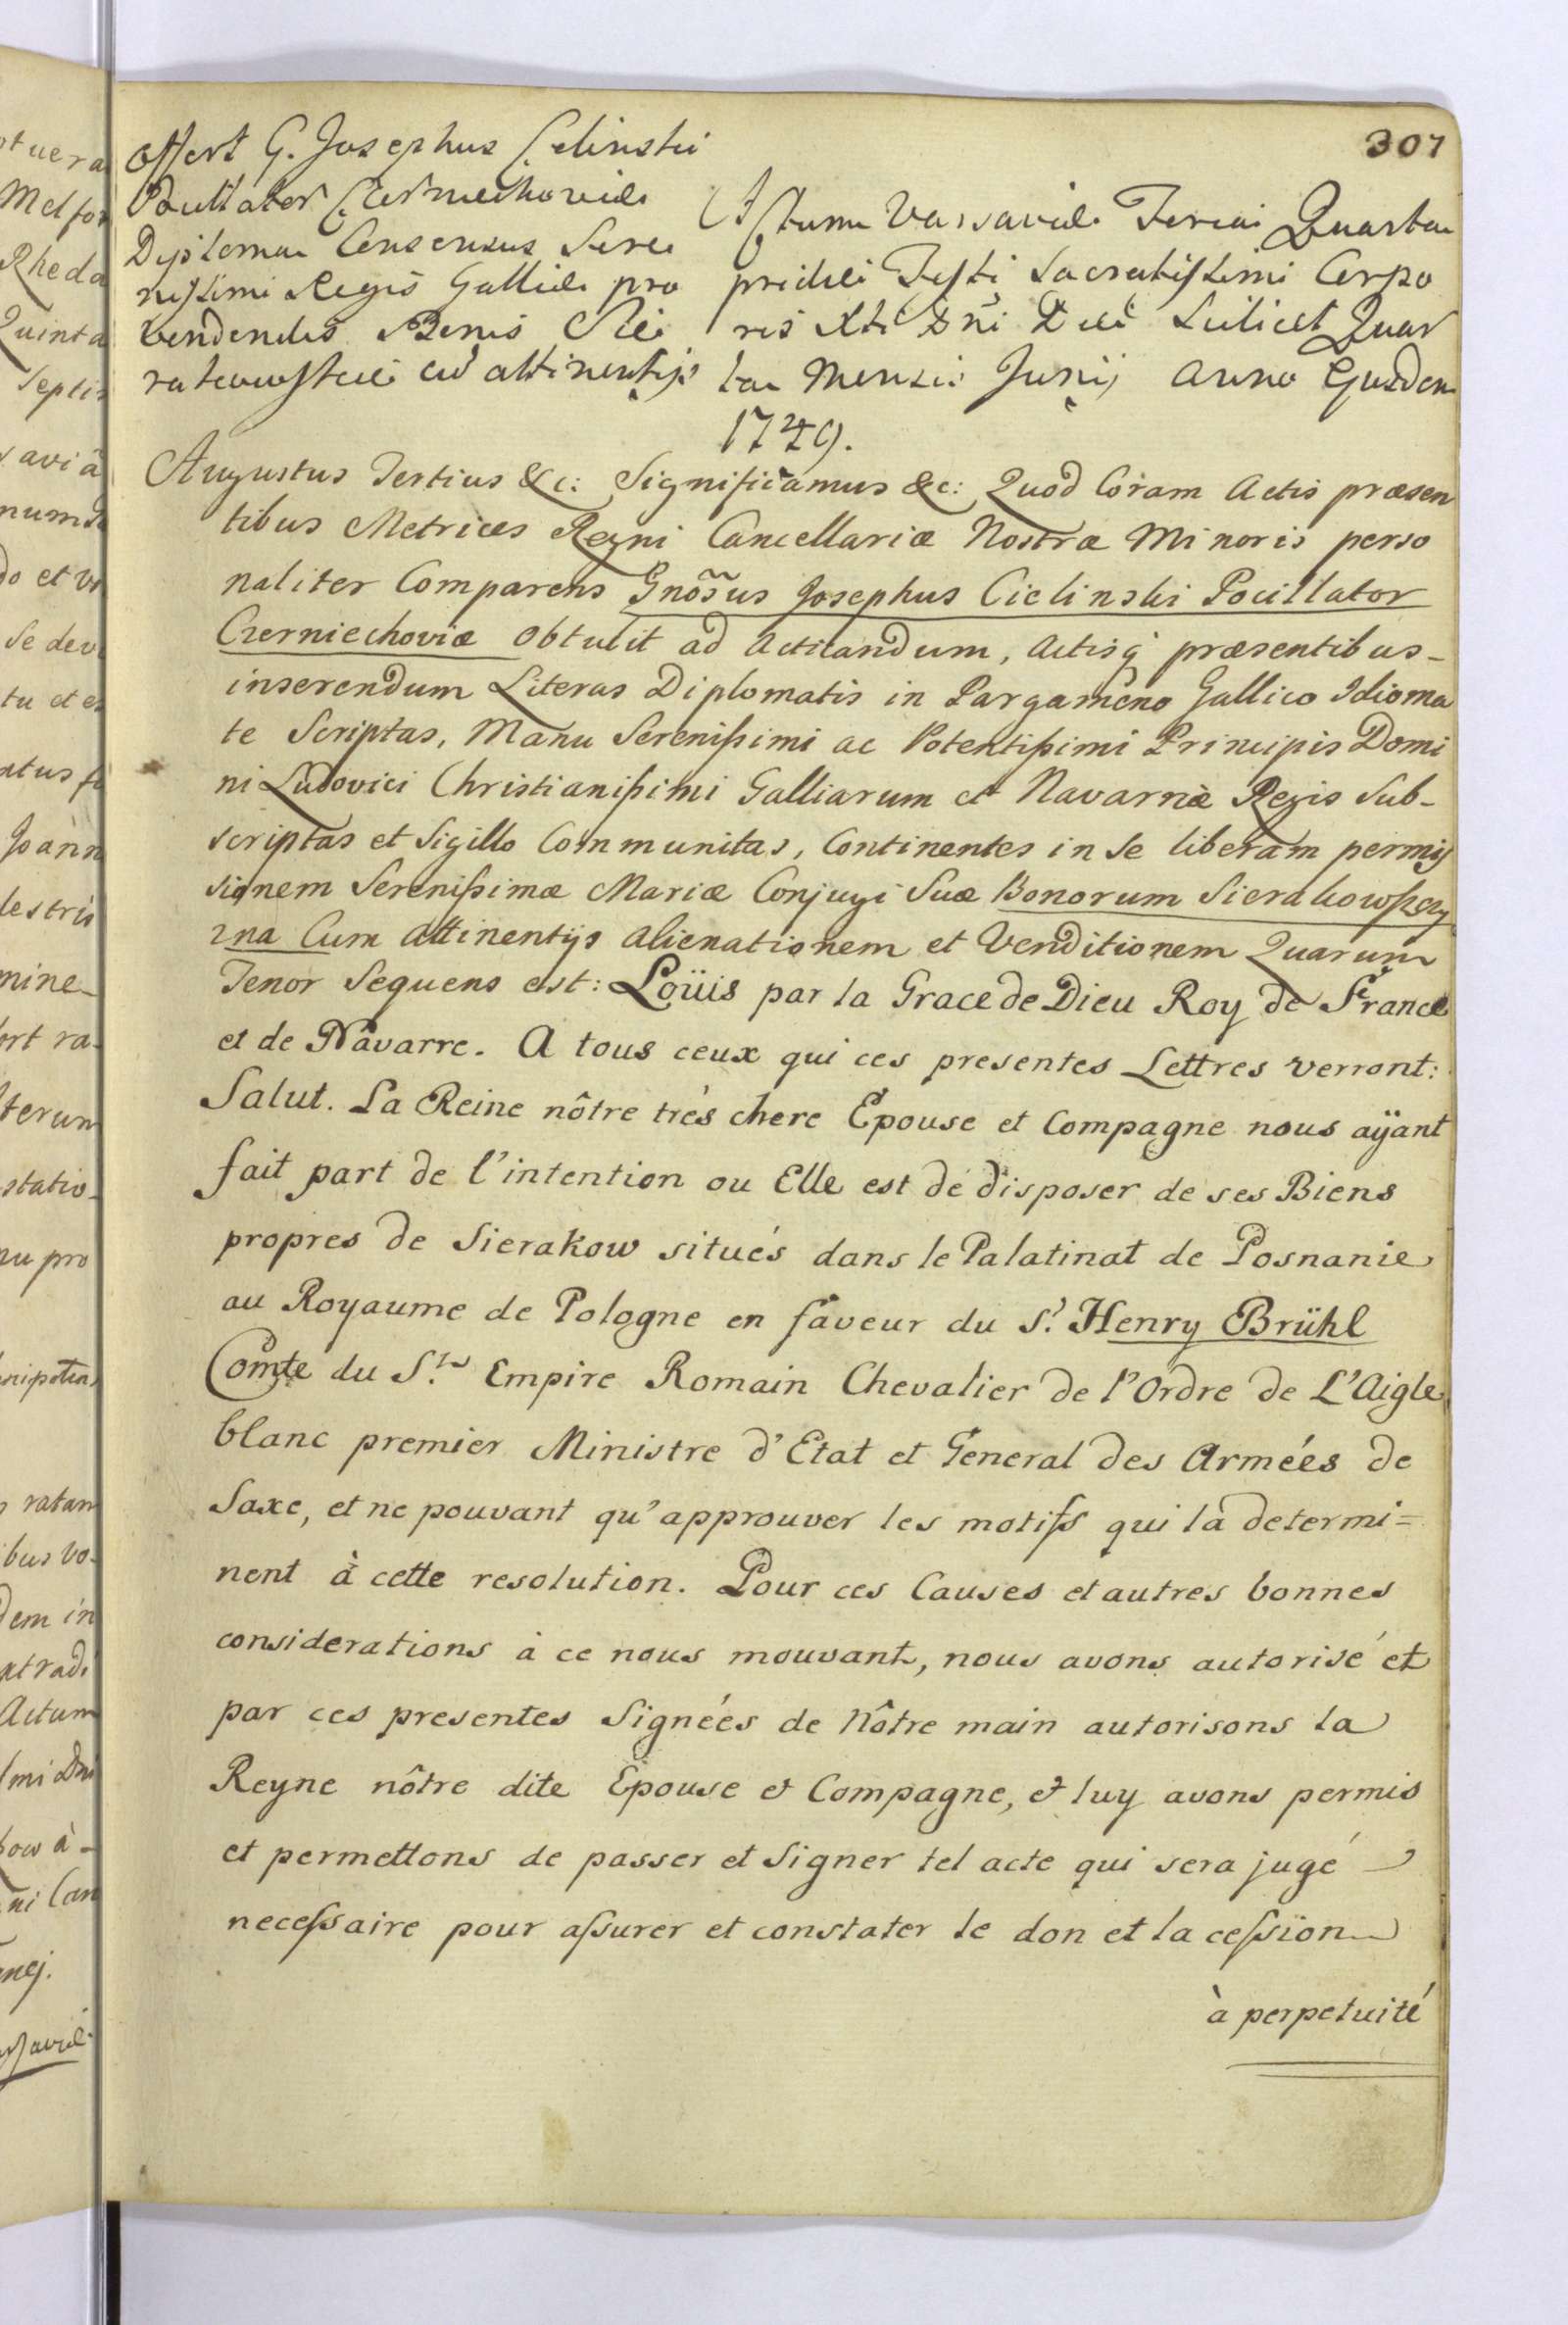 307
Offert G. Josephus Cielinski
Pocillator Czerniechoviæ
Diploma Consensus Sere
nissimi Regis Galliæ pro
vendendis Bonis Sie
rakowskie cū attinentijs
Actum Varsaviæ Feria Quarta
pridie Festi Sacratissimi Corpo
ris Xti Dñi Die Scilicet Quar
ta Mensis Junij Anno Eiusdem
1749.
Augustus Tertius &c: Significamus &c: Quod Coram Actis præsen
tibus Metrices Regni Cancellariæ Nostræ Minoris perso
naliter Comparens Gnõsus Josephus Cielinski Pocillator
Czerniechoviæ Obtulit ad Actitandum, Actisq̃ præsentibus-
inserendum Literas Diplomatis in Pargameno Gallico Idioma
te Scriptas, Manu Serenißimi ac Potentißimi Principis Domi
ni Ludovici Christianißimi Galliarum et Navarriæ Regis Sub-
scriptas et Sigillo Communitas, Continentes in Se liberam permis
sionem Serenißimæ Mariæ Conjugi Suæ Bonorum Sierakowszczy
zna Cum Attinentijs alienationem et Venditionem Quarum
Tenor Sequens est: Loüis par la Grace de Dieu Roy de France
et de Navarre. A tous ceux qui ces presentes Lettres verront:
Salut. La Reine nôtre trés chere Epouse et Compagne nous aÿant
fait part de l'intention ou Elle est de disposer de ses Biens
propres de Sierakow situés dans le Palatinat de Posnanie
au Royaume de Pologne en faveur du S.r Henry Brühl
Comte du S.t Empire Romain Chevalier de l'Ordre de L'Aigle
blanc premier Ministre d'Etat et General des Armées de
Saxe, et ne pouvant qu'approuver les motifs qui la determi=
nent à cette resolution. Pour ces Causes et autres bonnes
considerations à ce nous mouvant, nous avons autorisé et
par ces presentes Signées de Nôtre main autorisons la
Reyne nôtre dite Epouse et Compagne, et luy avons permis
et permettons de passer et Signer tel acte qui sera jugé
necessaire pour assurer et constater le don et la cession
à perpetuité